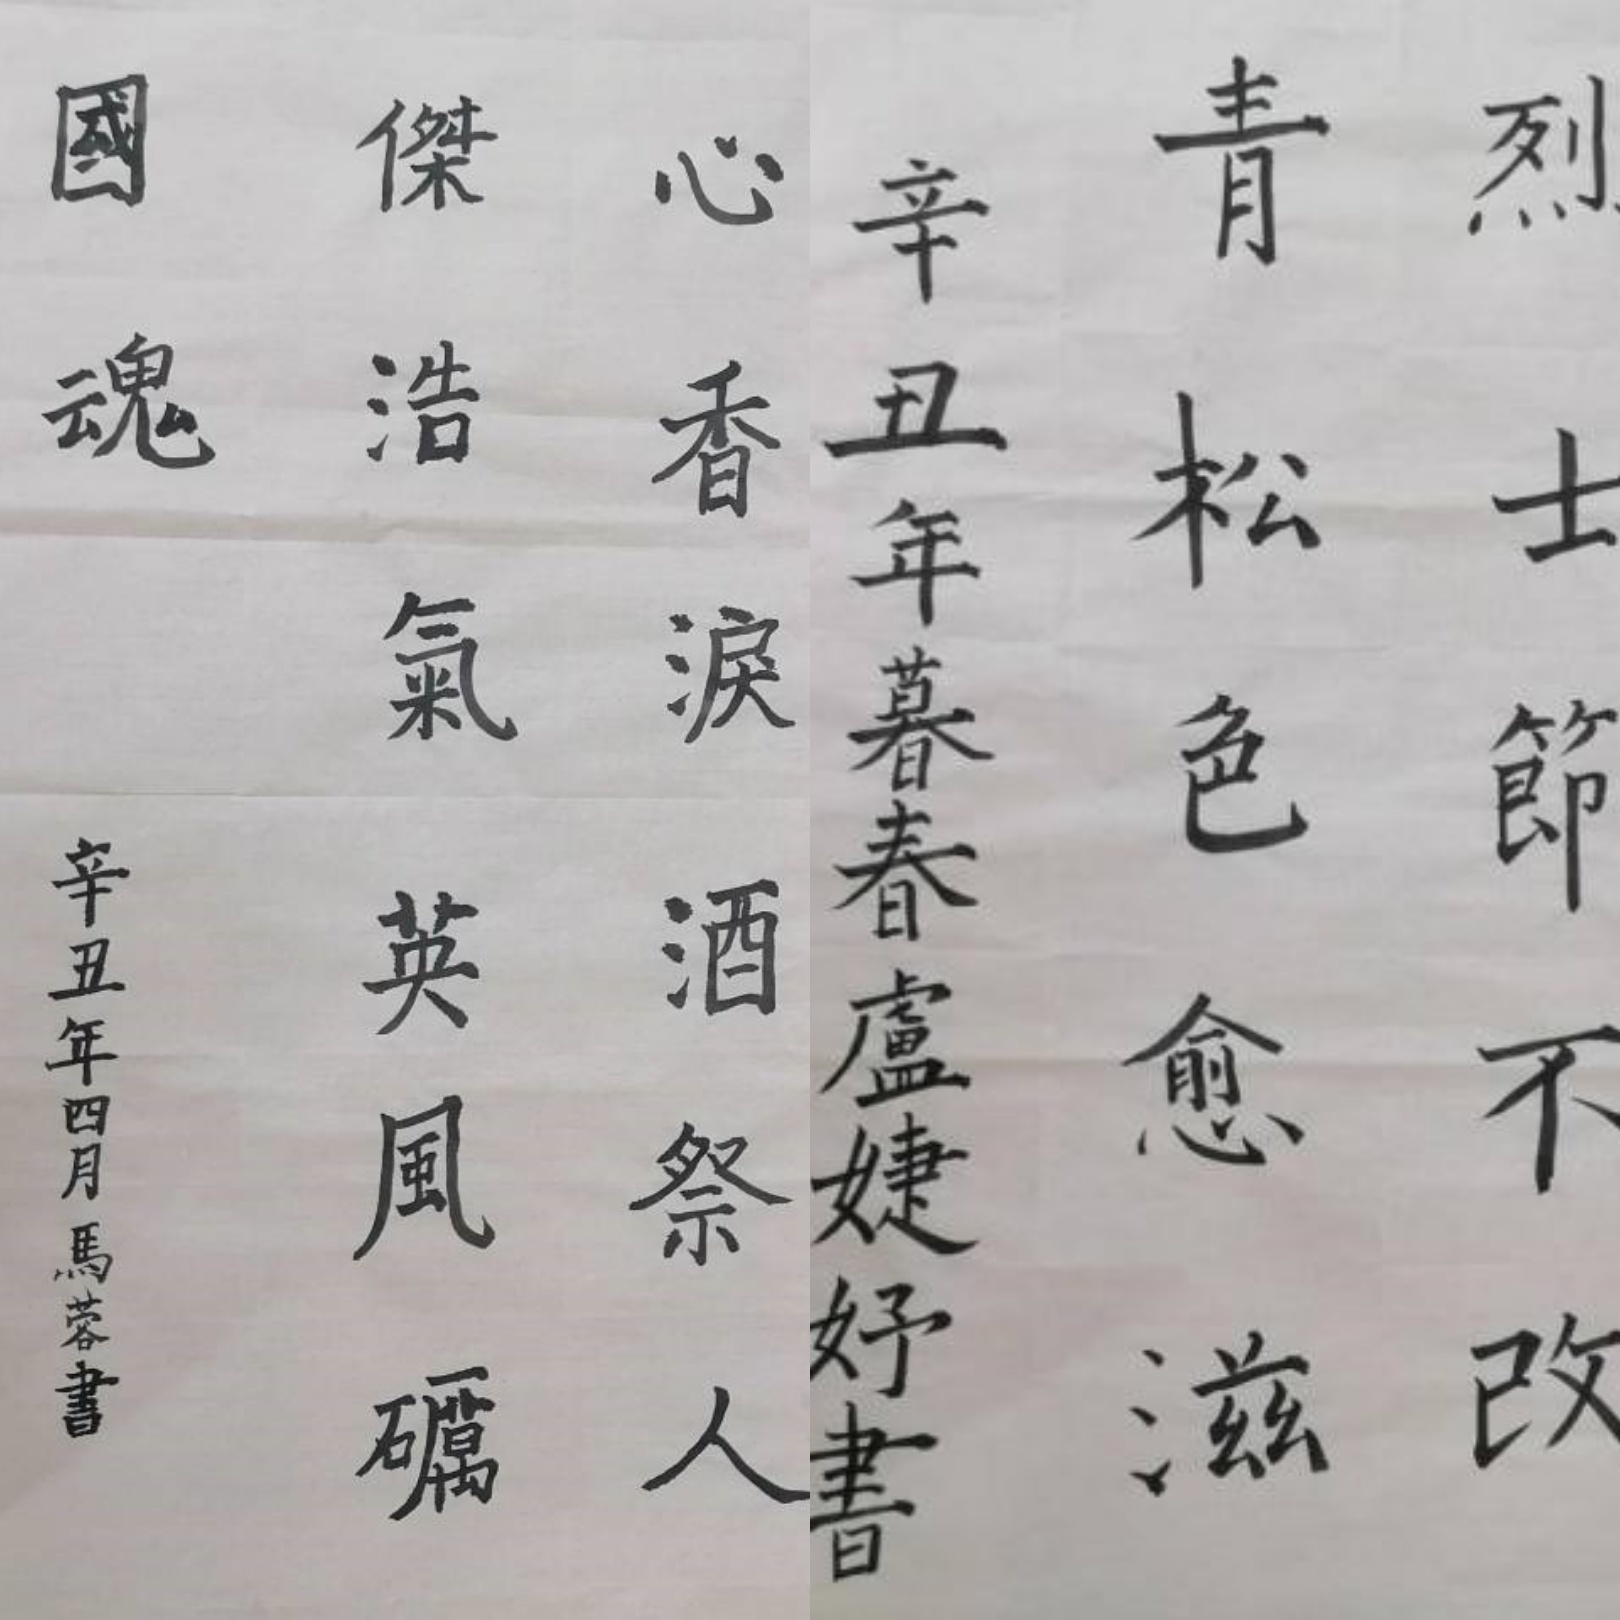 心香淚酒祭人
傑浩氣英風礪
國魂
辛丑年四月馬蓉書
烈士節不改
青松色愈滋
辛丑年暮春盧婕妤書